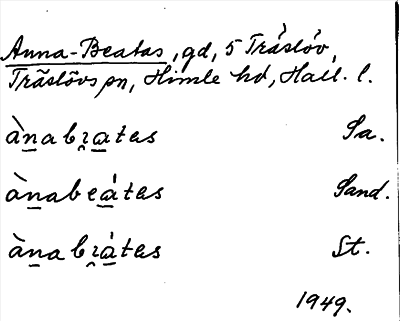 Anna-Beatas, gd, 5 Tráslóv,
Träslövs sn, Himle hd, Hall. l.
ànabi̯atas Sa.
ànabeátas Sand.
ànabi̯átas St.
1949.